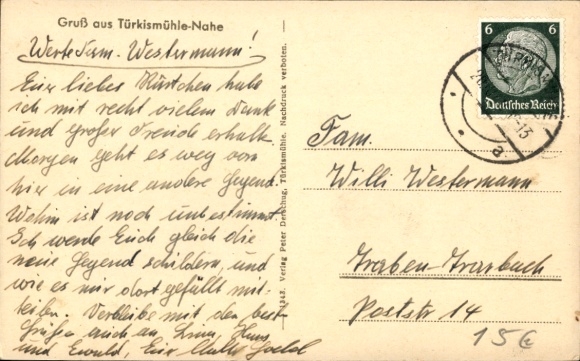 Gruß aus Türkismühle-Nahe
Werte Fam. Westermann!
Euer liebes Kärtchen habe
ich mit recht vielem Dank
und großer Freude erhalt.
Morgen geht es weg von
hier in eine andere Gegend.
Wohin ist noch unbestimmt.
Ich werde Euch gleich die
neue Gegend schildern, und
wie es mir dort gefällt mit-
teilen. Verbleibe mit den best
Grüßen auch an Hans
und Ewald, Euer
4243. Verlag Peter Türkismühle. Nachdruck verboten.
6 6
Deutsches Reich
a
Fam.
Willi Westermann
Traben-Trarbach
Poststr 14
15€